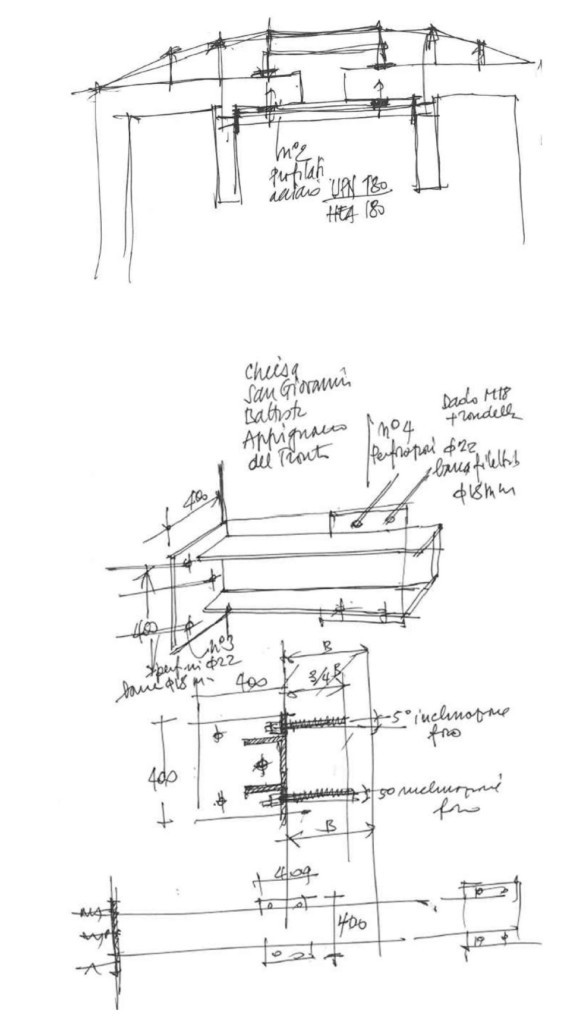 n°2
Profilati
acciaio UPN 180
HEA 180
Chiesa
San Giovanni
Battista
Appignano
del Tronto
Dado M18
+ rondella
n° 4
Perforazioni Φ22
barra filettata
Φ18mm
400
400
n°3
Φ22
barre Φ18 m
B
400
3/4 B
5° inclinazione
foro
400
5° inclinazione
foro
B
400
400